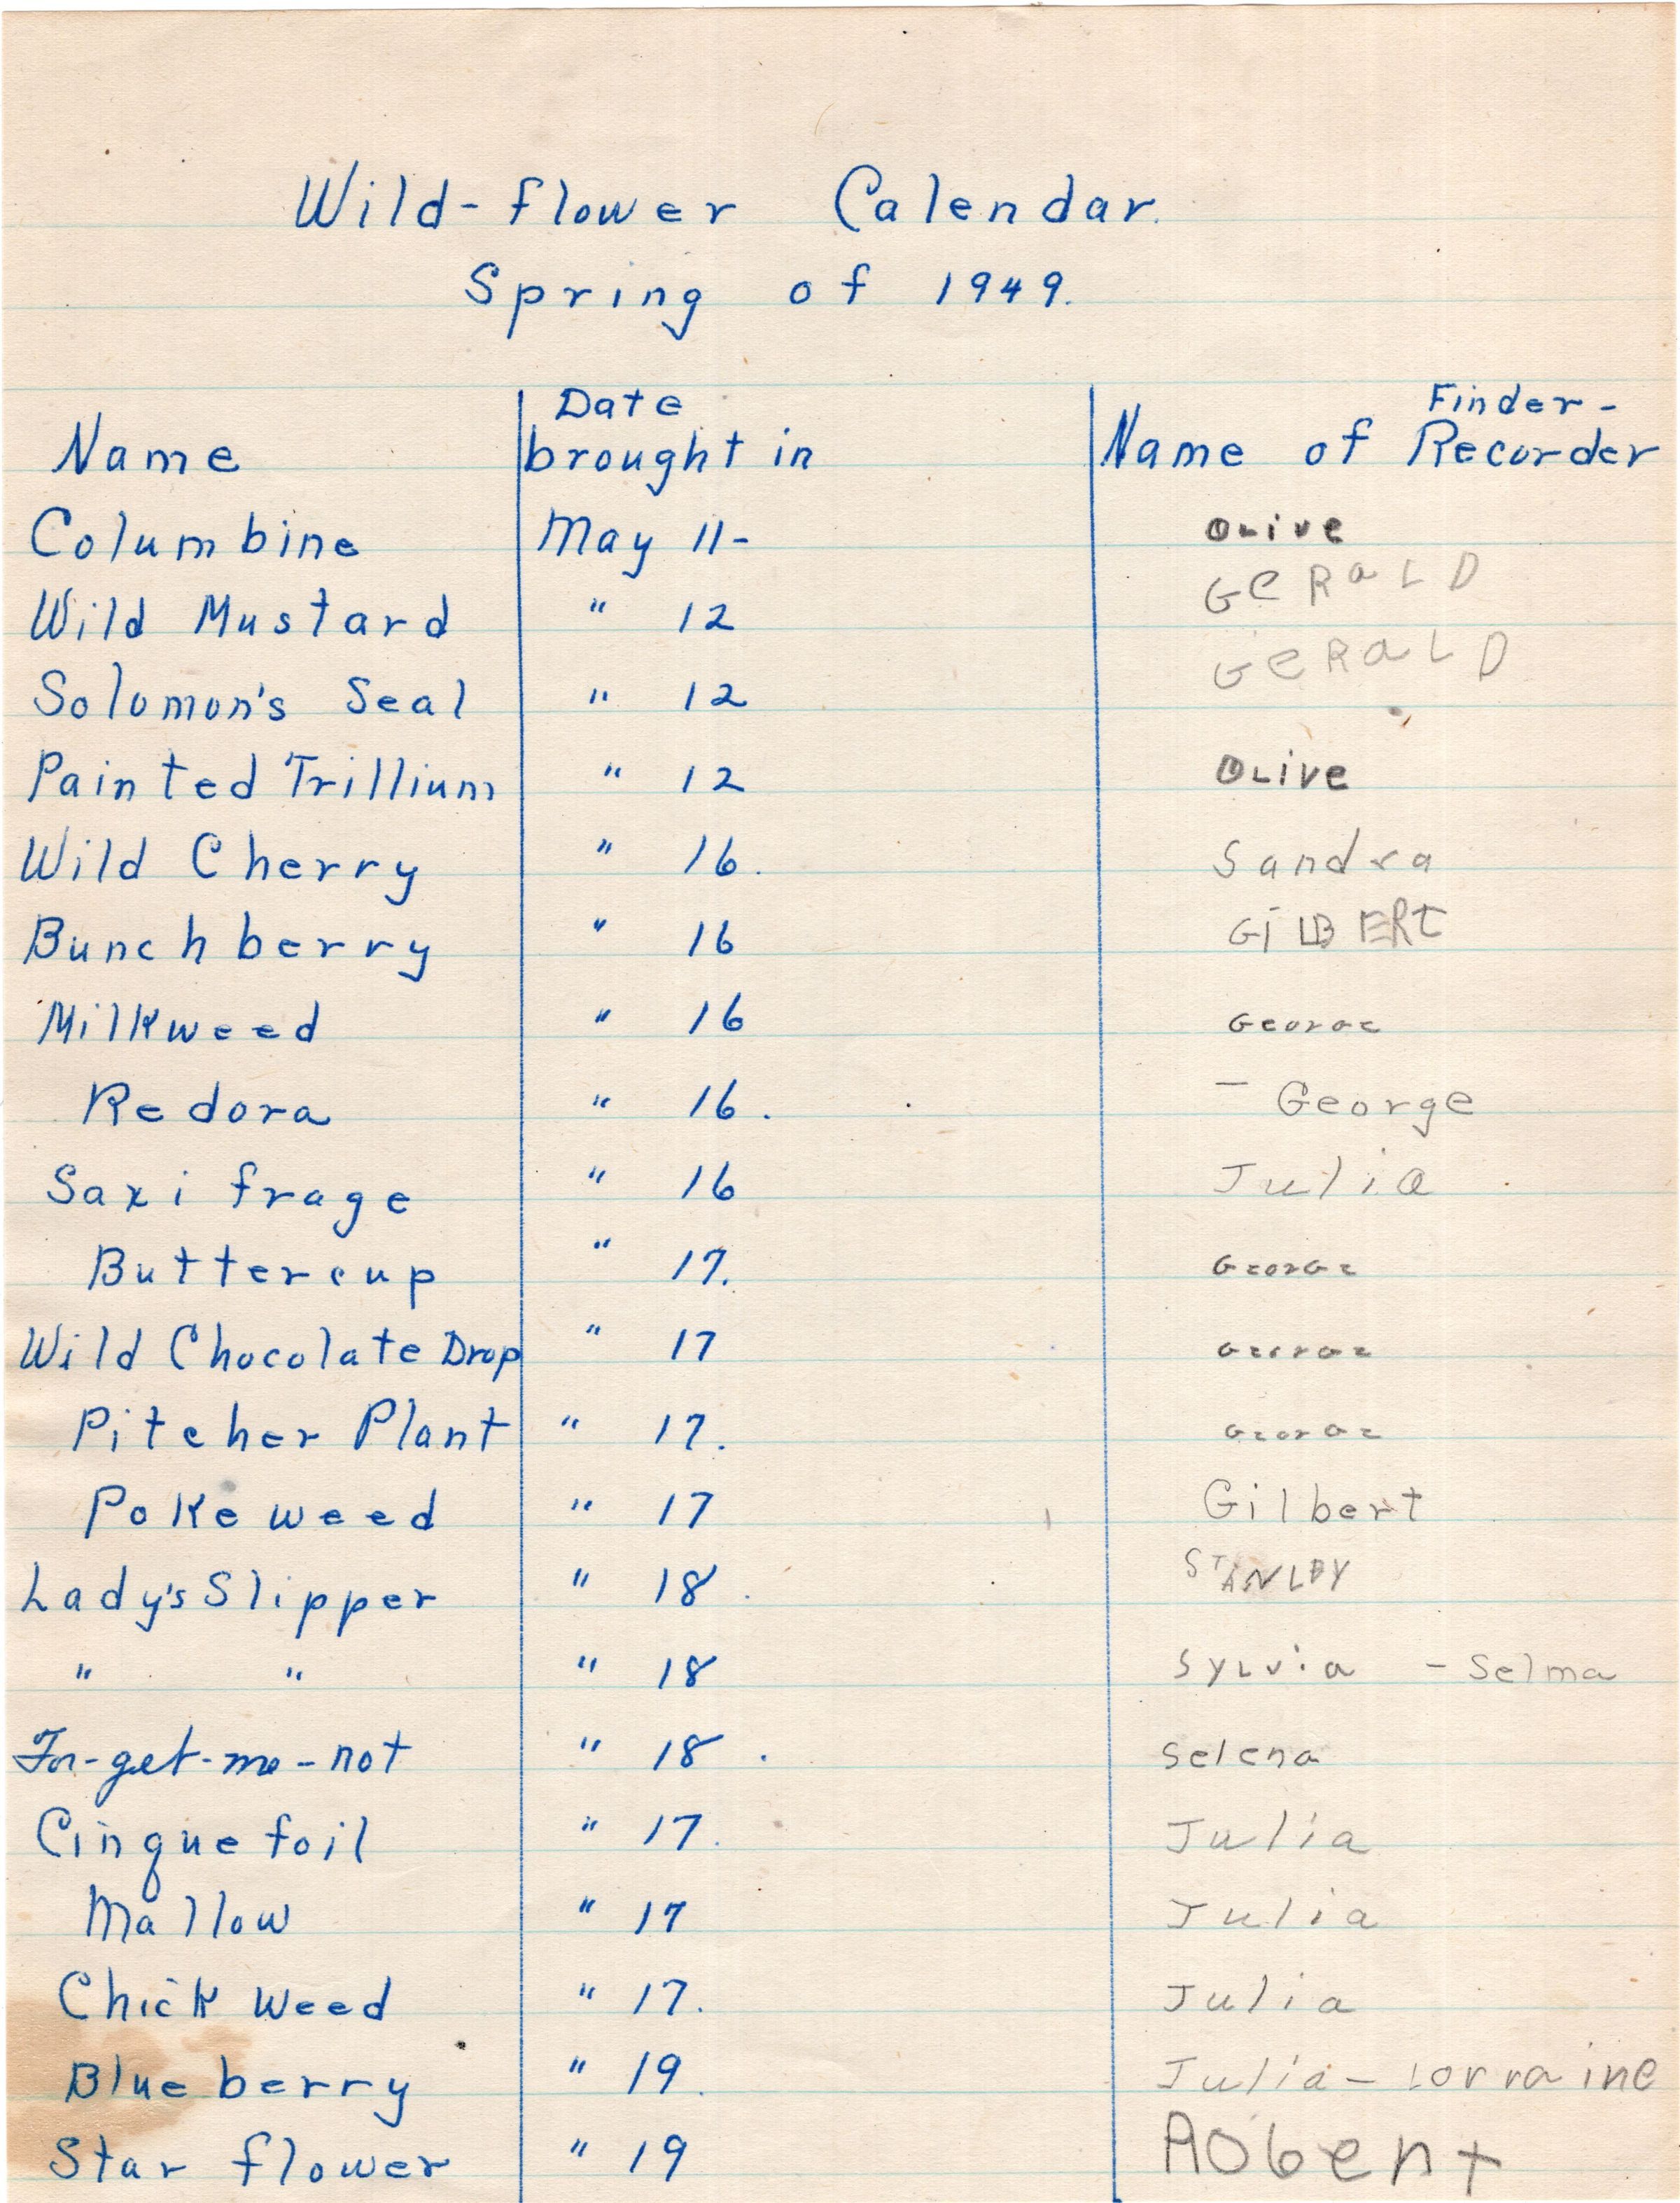 Wild-flower Calendar.
Spring of 1949.
Name Date brought in Name of Finder-Recorder
Columbine May 11- OLive
Wild Mustard " 12 GeRaLD
Solomon's Seal " 12 GeRaLD
Painted Trillium " 12 OLive
Wild Cherry " 16. Sandra
Bunchberry " 16 GiLBERt
Milkweed " 16 George
Redora " 16. - George
Saxifrage " 16 Julia
Buttercup " 17. George
Wild Chocolate Drop " 17 George
Pitcher Plant " 17. George
Pokeweed " 17 Gilbert
Lady's Slipper " 18. STANLEY
" " " 18 SyLvia - Selma
For-get-me-not " 18. Selena
Cinquefoil " 17. Julia
Mallow " 17 Julia
Chickweed " 17. Julia
Blueberry " 19. Julia - Lorraine
Star flower " 19 RObert